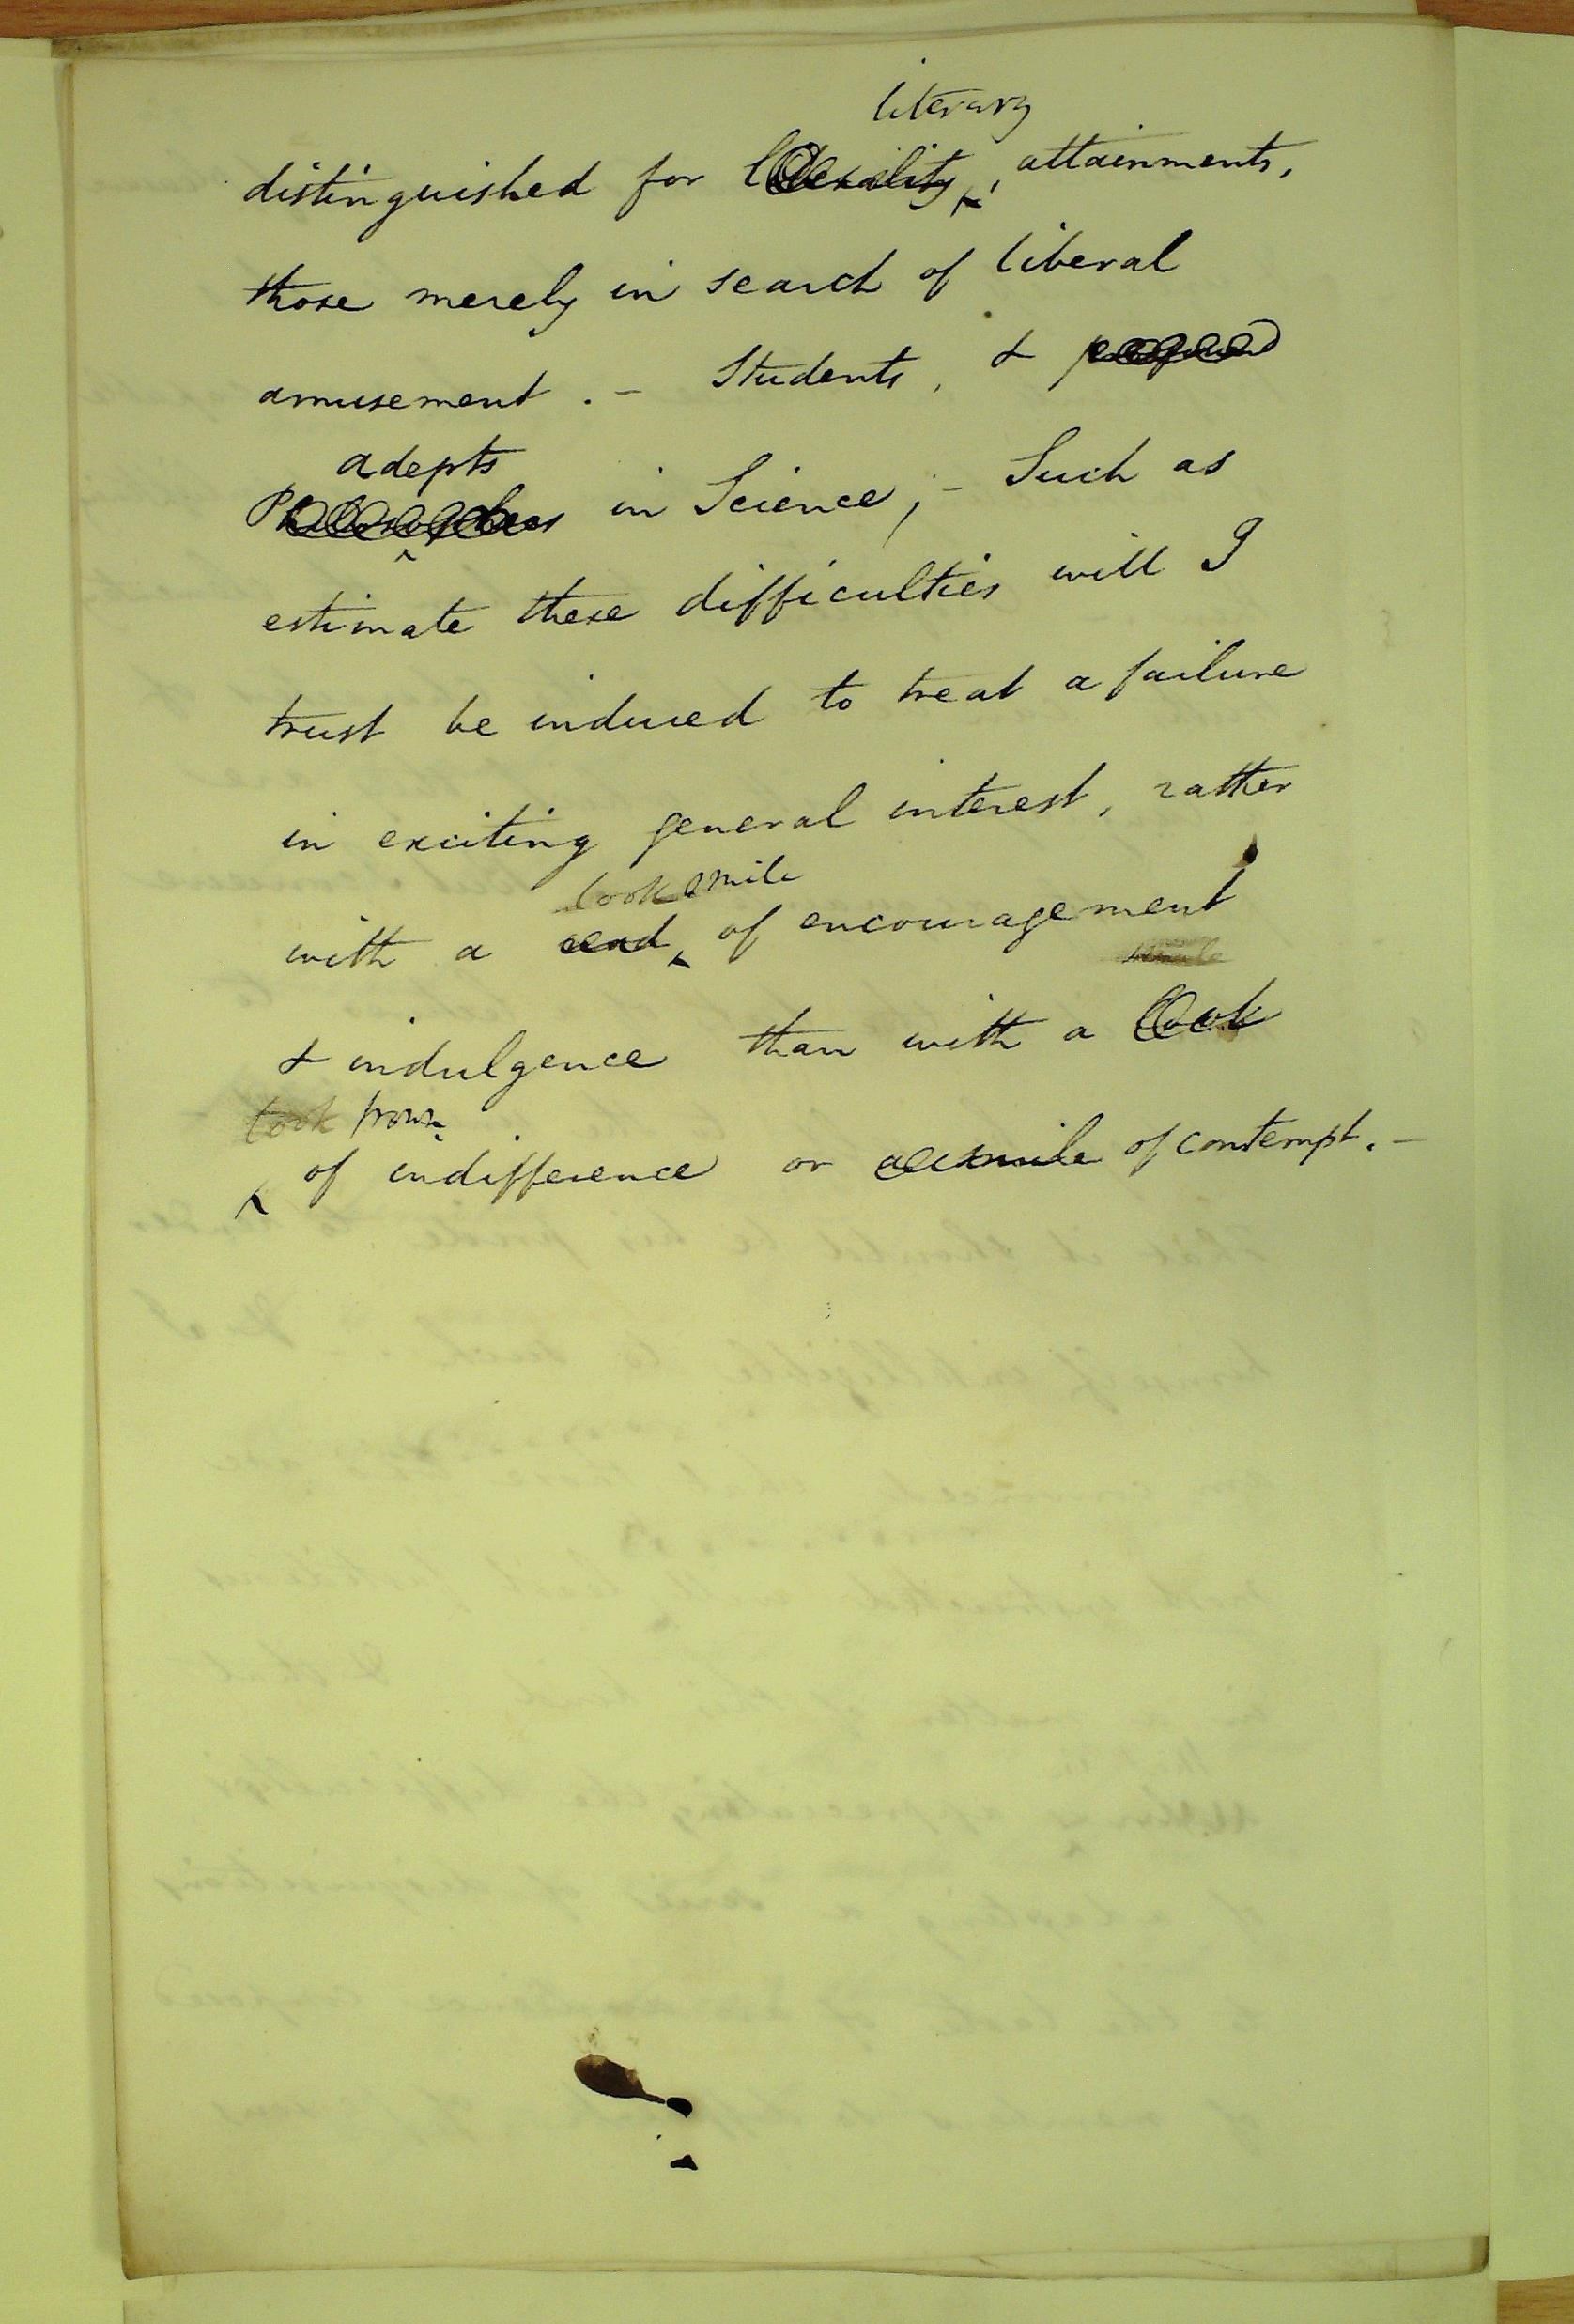 literary
distinguished for liberality, attainments,
those merely in search of liberal
amusement. - Students, &
adepts
Philosophers in Science; - Such as
estimate these difficulties will I
trust be induced to treat a failure
in exciting general interest, rather
look smile
with a of encouragement
smile
& indulgence than with a look
look frown
of indifference or a smile of contempt. -